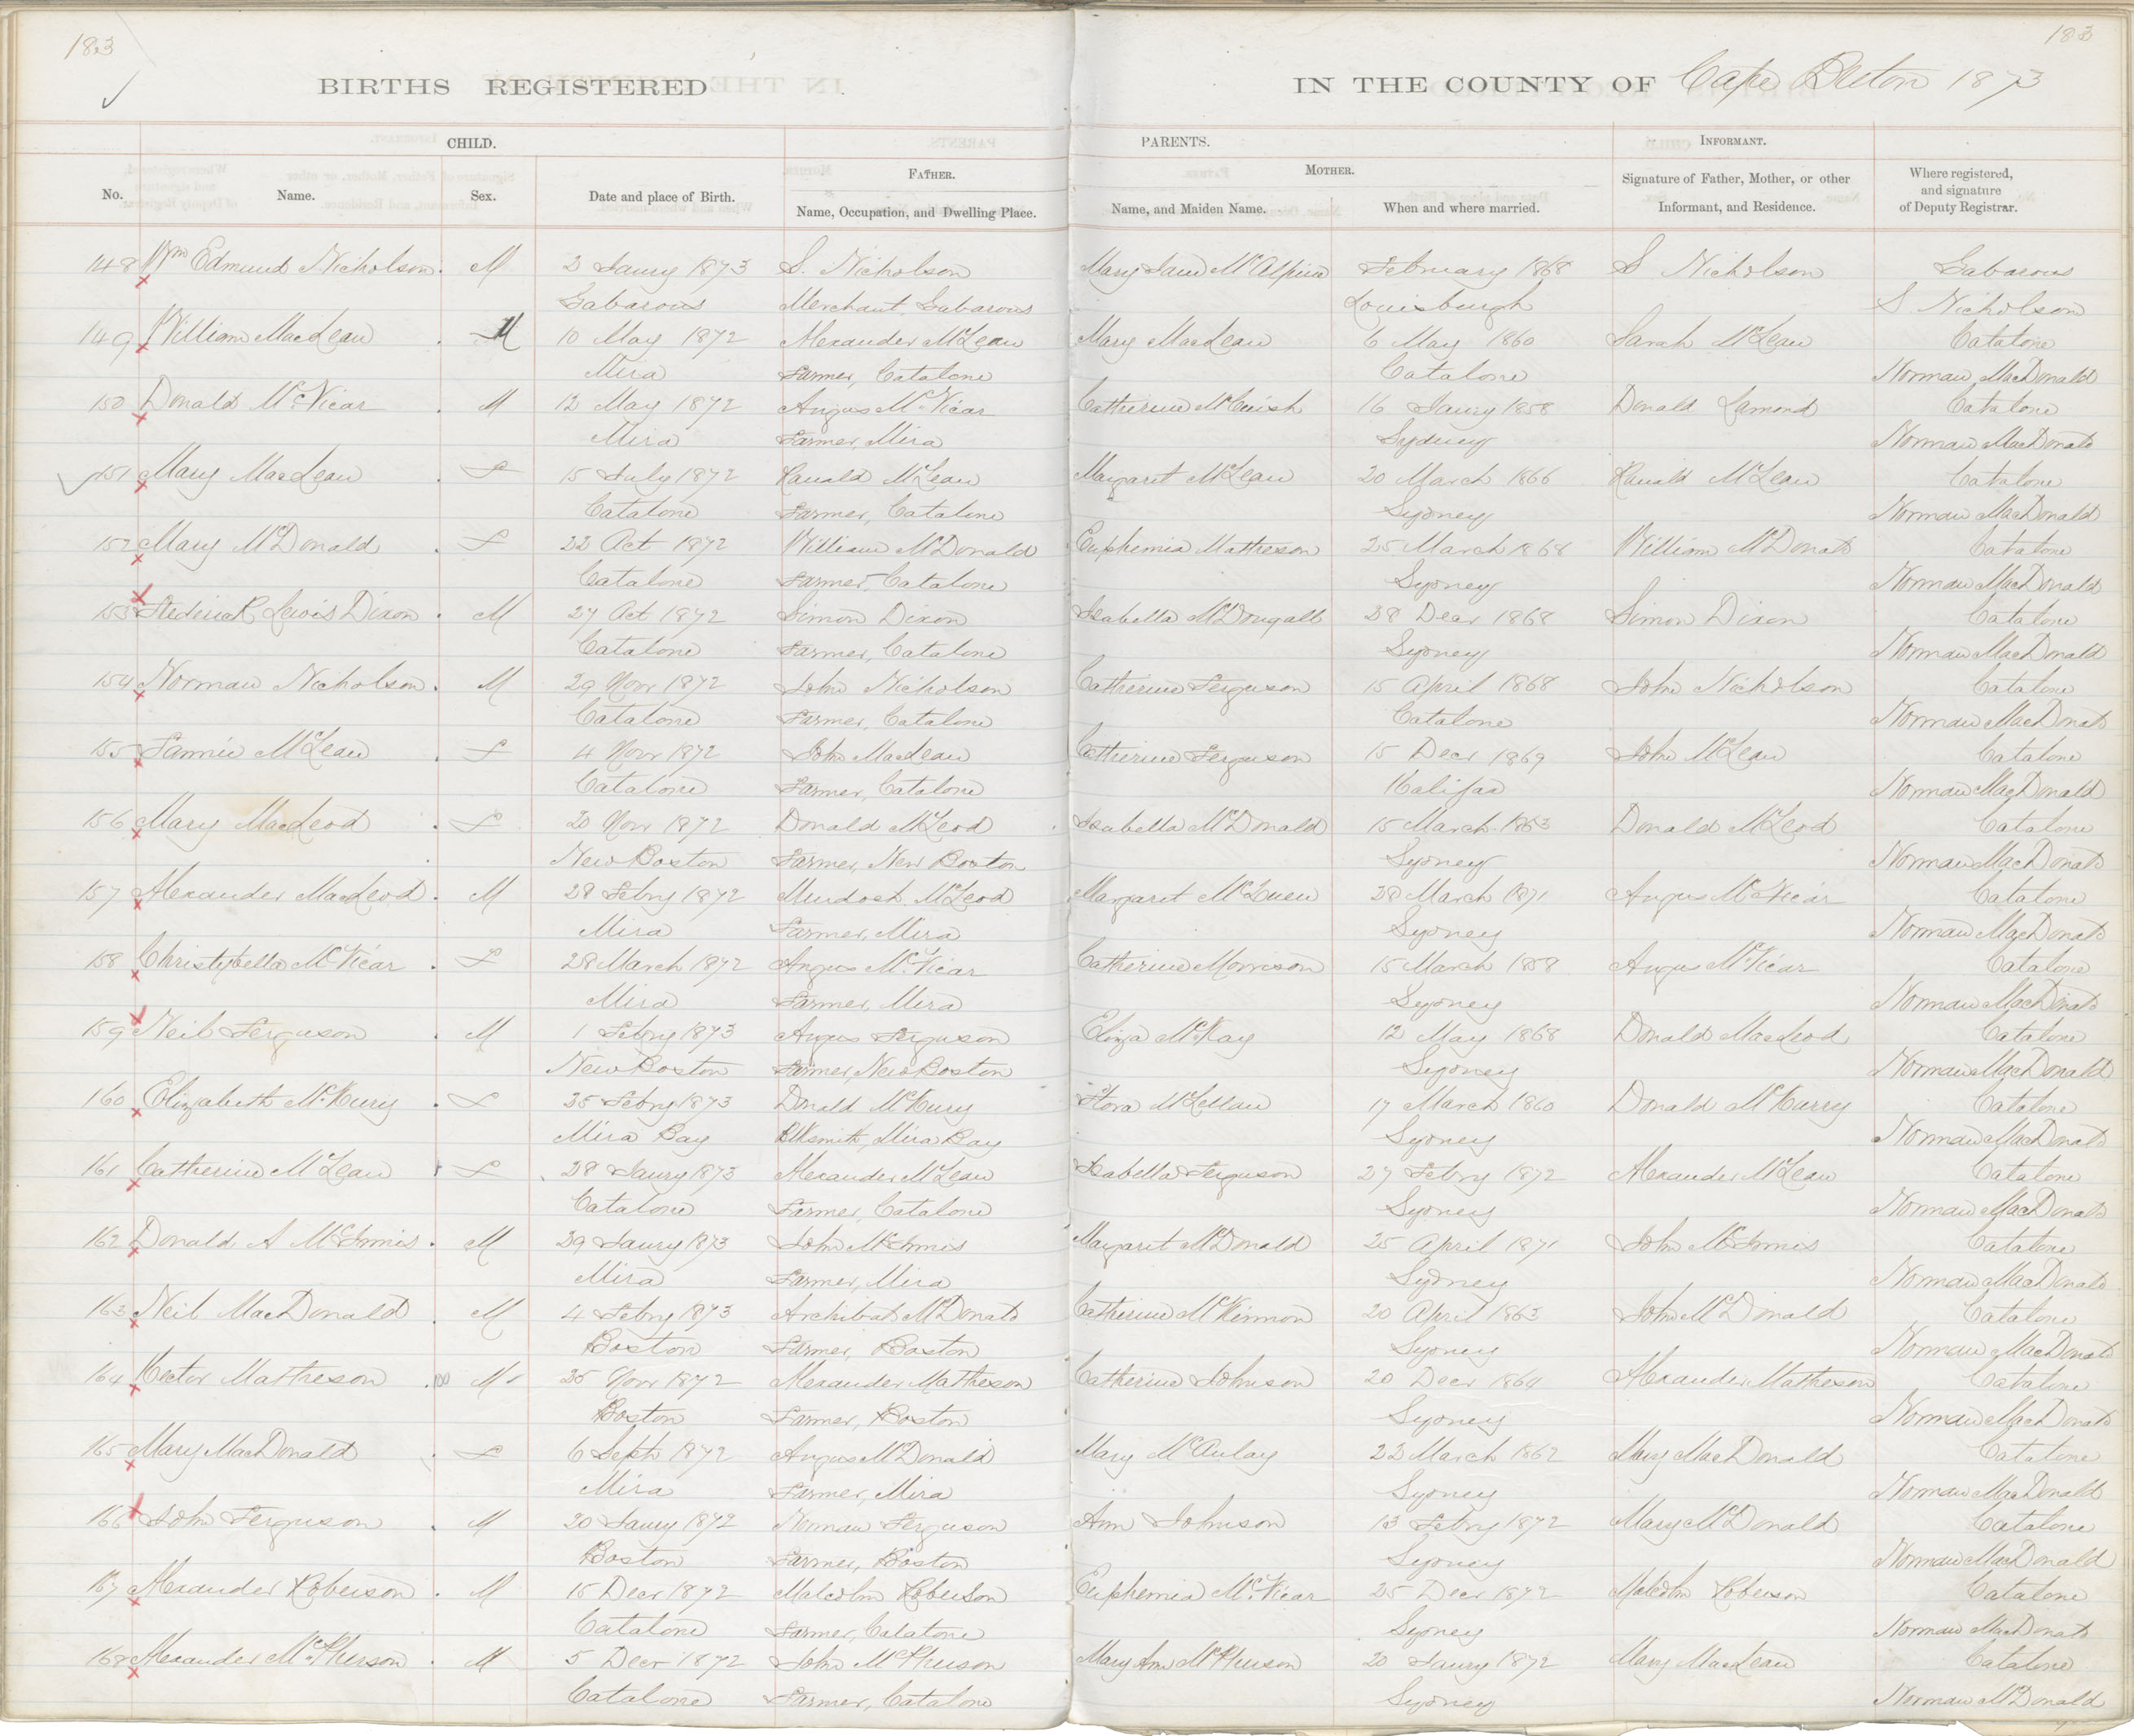 183
183
BIRTHS REGISTERED
IN THE COUNTY OF Cape Breton 1873
CHILD.
PARENTS.
INFORMANT.
No.
Name.
Sex.
Date and place of Birth.
FATHER.
Name, Occupation, and Dwelling Place.
MOTHER.
Name, and Maiden Name.
When and where married.
Signature of Father, Mother, or other
Informant, and Residence.
Where registered,
and signature
of Deputy Registrar.
148 Wm Edmund Nicholson M 2 Jaury 1873 S. Nicholson Mary Jane McAlpine February 1868 S Nicholson Gabarous
Gabarous Merchant, Gabarous Louisburgh S. Nicholson
149 William MacLean M 10 May 1872 Alexander McLean Mary MacLean 6 May 1860 Sarah McLean Catalone
Mira Farmer, Catalone Catalone Norman MacDonald
150 Donald McVicar M 12 May 1872 Angus McVicar Catherine McCuish 16 Jaury 1858 Donald Lamond Catalone
Mira Farmer, Mira Sydney Norman MacDonald
151 Mary MacLean F 15 July 1872 Ranald McLean Margaret McLean 20 March 1866 Ranald McLean Catalone
Catalone Farmer, Catalone Sydney Norman MacDonald
152 Mary McDonald F 22 Oct 1872 William McDonald Euphemia Matheson 25 March 1868 William McDonald Catalone
Catalone Farmer, Catalone Sydney Norman MacDonald
153 Frederick Lewis Dixon M 27 Oct 1872 Simon Dixon Isabella McDougall 28 Decr 1868 Simon Dixon Catalone
Catalone Farmer, Catalone Sydney Norman MacDonald
154 Norman Nicholson M 29 Novr 1872 John Nicholson Catherine Ferguson 15 April 1868 John Nicholson Catalone
Catalone Farmer, Catalone Catalone Norman MacDonald
155 Fannie McLean F 4 Novr 1872 John MacLean Catherine Ferguson 15 Decr 1869 John McLean Catalone
Catalone Farmer, Catalone Halifax Norman MacDonald
156 Mary MacLeod F 20 Novr 1872 Donald McLeod Isabella McDonald 15 March 1863 Donald McLeod Catalone
New Boston Farmer, New Boston Sydney Norman MacDonald
157 Alexander MacLeod M 28 Febry 1872 Murdoch McLeod Margaret 28 March 1871 Angus McVicar Catalone
Mira Farmer, Mira Sydney Norman MacDonald
158 Christybella McVicar F 28 March 1872 Angus McVicar Catherine Morrison 15 March 1858 Angus McVicar Catalone
Mira Farmer, Mira Sydney Norman MacDonald
159 Neil Ferguson M 1 Febry 1873 Angus Ferguson Eliza McKay 12 May 1868 Donald MacLeod Catalone
New Boston Farmer, New Boston Sydney Norman MacDonald
160 Elizabeth McKury F 25 Febry 1873 Donald McKury Flora McLellan 17 March 1860 Donald McKurry Catalone
Mira Bay Blksmith, Mira Bay Sydney Norman MacDonald
161 Catherine McLean F 28 Jaury 1873 Alexander McLean Isabella Ferguson 27 Febry 1872 Alexander McLean Catalone
Catalone Farmer, Catalone Sydney Norman MacDonald
162 Donald A McInnis M 29 Jaury 1873 John McInnis Margaret McDonald 25 April 1871 John McInnis Catalone
Mira Farmer, Mira Sydney Norman MacDonald
163 Neil MacDonald M 4 Febry 1873 Archibald McDonald Catherine McKinnon 20 April 1863 John McDonald Catalone
Boston Farmer, Boston Sydney Norman MacDonald
164 Hector Matheson M 25 Novr 1872 Alexander Matheson Catherine Johnson 20 Decr 1864 Alexander Matheson Catalone
Boston Farmer, Boston Sydney Norman MacDonald
165 Mary MacDonald F 6 Septr 1872 Angus McDonald Mary McAulay 22 March 1862 Mary MacDonald Catalone
Mira Farmer, Mira Sydney Norman MacDonald
166 John Ferguson M 20 Jaury 1872 Norman Ferguson Ann Johnson 13 Febry 1872 Mary McDonald Catalone
Boston Farmer, Boston Sydney Norman MacDonald
167 Alexander Roberson M 15 Decr 1872 Malcolm Roberson Euphemia McVicar 25 Decr 1872 Malcolm Roberson Catalone
Catalone Farmer, Catalone Sydney Norman MacDonald
168 Alexander McPherson M 5 Decr 1872 John McPherson Mary Ann McPherson 20 Jaury 1872 Mary MacLean Catalone
Catalone Farmer, Catalone Sydney Norman McDonald